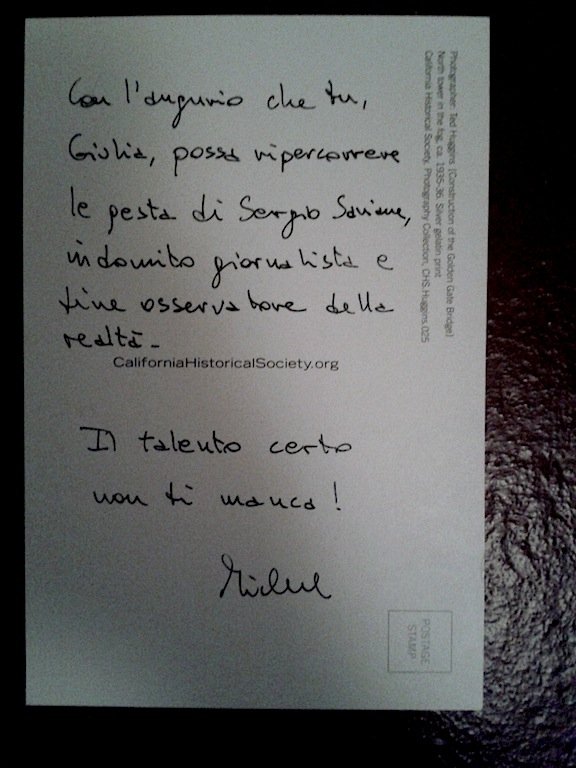 Con l'augurio che tu,
Giulia, possa ripercorrere
le pesta di Sergio Saviane,
indomito giornalista e
fine osservatore della
realtà.
CaliforniaHistoricalSociety.org
Il talento certo
non ti manca!
Photographer: Ted Huggins [Construction of the Golden Gate Bridge]
North tower in the fog, ca. 1935-36. Silver gelatin print
California Historical Society, Photography Collection, CHS.Huggins.025
POSTAGE
STAMP